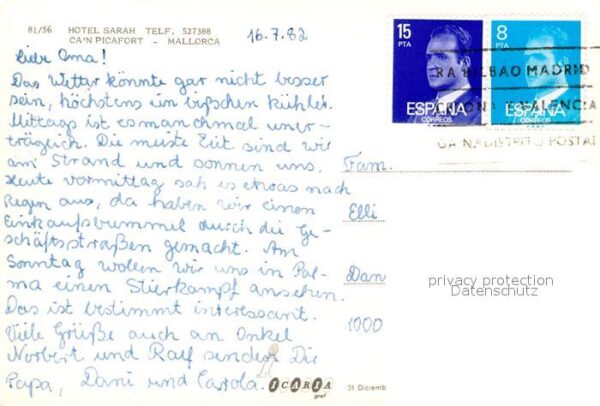 81/56 HOTEL SARAH TELF. 527388
CA'N PICAFORT - MALLORCA
16.7.82
15
PTA
ESPAÑA
CORREOS
8
PTA
ESPAÑA
CORREOS
RA BILBAO MADRID
VALENCIA
DISTRITO POSTAL
Liebe Oma!
Das Wetter könnte gar nicht besser
sein, höchstens im bißchen kühler.
Mittags ist es manchmal uner-
träglich. Die muste Zeit sind wir
am Strand und sonnen uns.
Heute vormittag sah es etwas nach
Regen aus, da haben wir einen
Einkaufsbummel durch die Ge-
schäftsstraßen gemacht. Am
Sonntag wollen wir uns in Pal-
ma einen Stierkampf ansehen.
Das ist bestimmt interessant.
Viele Grüße auch an Onkel
Norbert und Ralf senden Dir
Papa, Dani und Carola.
Fam.
Elli
Dan
1000
privacy protection
Datenschutz
ICARIA
graf
31 Diciemb